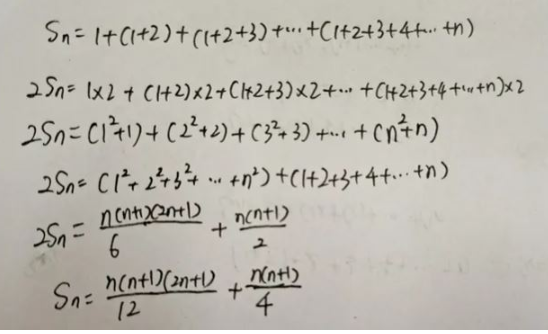 Sn=1+(1+2)+(1+2+3)+⋯+(1+2+3+4+⋯+n)
2Sn=1×2+(1+2)×2+(1+2+3)×2+⋯+(1+2+3+4+⋯+n)×2
2Sn=(1²+1)+(2²+2)+(3²+3)+⋯+(n²+n)
2Sn=(1²+2²+3²+⋯+n²)+(1+2+3+4+⋯+n)
2Sn=n(n+1)(2n+1)/6+n(n+1)/2
Sn=n(n+1)(2n+1)/12+n(n+1)/4